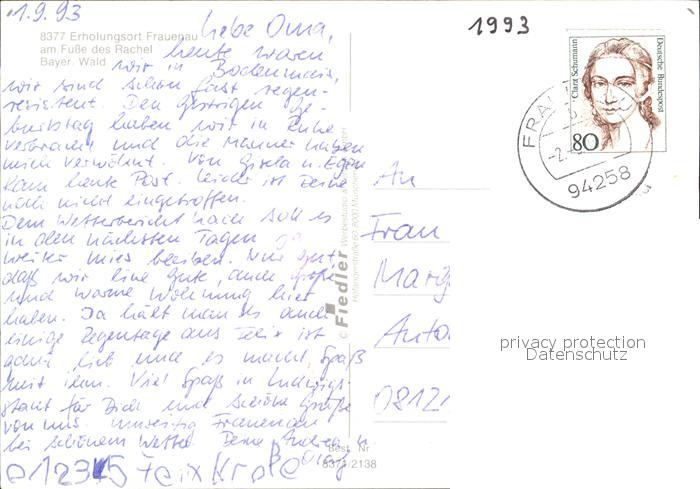 1.9.93
8377 Erholungsort Frauenau
am Fuße des Rachel
Bayer. Wald
Liebe Oma,
heute waren
wir in Bodenmais,
wir sind schon fast regen-
resistent. Den gestrigen Ge-
burtstag haben wir in Ruhe
verbracht und die Männer haben
mich verwöhnt. Von Gisela u. Egon
kam heute Post. Leider ist Deine
noch nicht eingetroffen.
Dem Wetterbericht nach soll es
in den nächsten Tagen so
weiter mies bleiben. Nur gut,
daß wir eine gute, auch große
und warme Wohnung hier
haben. Da hält man es auch
einige Regentage aus. Felix ist
ganz lieb und es macht Spaß
mit ihm. Viel Spaß in Ludwigs-
stadt für Dich und schöne Grüße
von uns. Frauenau
bei schönem Wetter Deine Andrea u.
Olaf
e12345 Felix
© Fiedler
8000 München
Best. Nr
8371/2138
1993
Clara Schumann
Deutsche Bundespost
80
94258
An
Frau
Marg
Anto
08121
privacy protection
Datenschutz